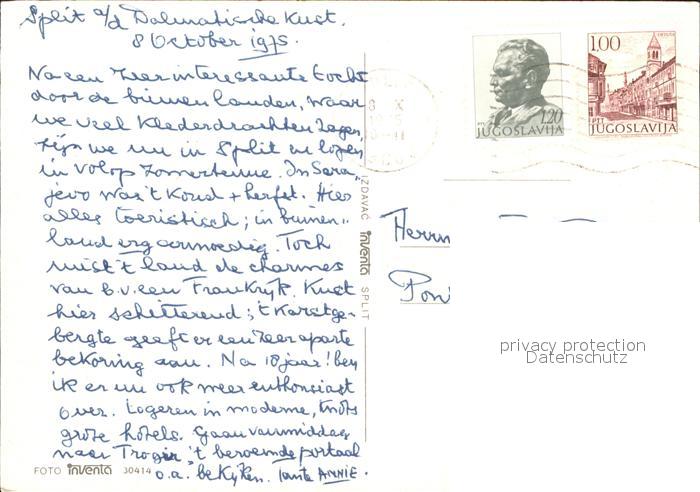 Split a/d Dalmatische Kust.
8 October 1975.
Na een zeer interessante tocht
door de binnenlanden, waar
we veel klederdrachten zagen,
zijn we nu in Split en lopen
in volop zomertenue. In Sara„
jevo was 't koud + herfst. Hier
alles toeristisch; in binnen„
land erg armoedig. Toch
mist 't land de charmes
van b.v. een Frankrijk. Kust
hier schitterend; 't Karstge-
bergte geeft er een zeer aparte
bekoring aan. Na 10 jaar! ben
ik er nu ook meer enthousiast
over. Logeren in moderne,
grote hotels. Gaan vanmiddag
naar Trogir, 't beroemde portaal
o.a. bekijken. Tante ANNIE.
FOTO inventa 30414
IZDAVAČ inventa SPLIT
1.20
JUGOSLAVIJA
1.00
JUGOSLAVIJA
Herrn
privacy protection
Datenschutz